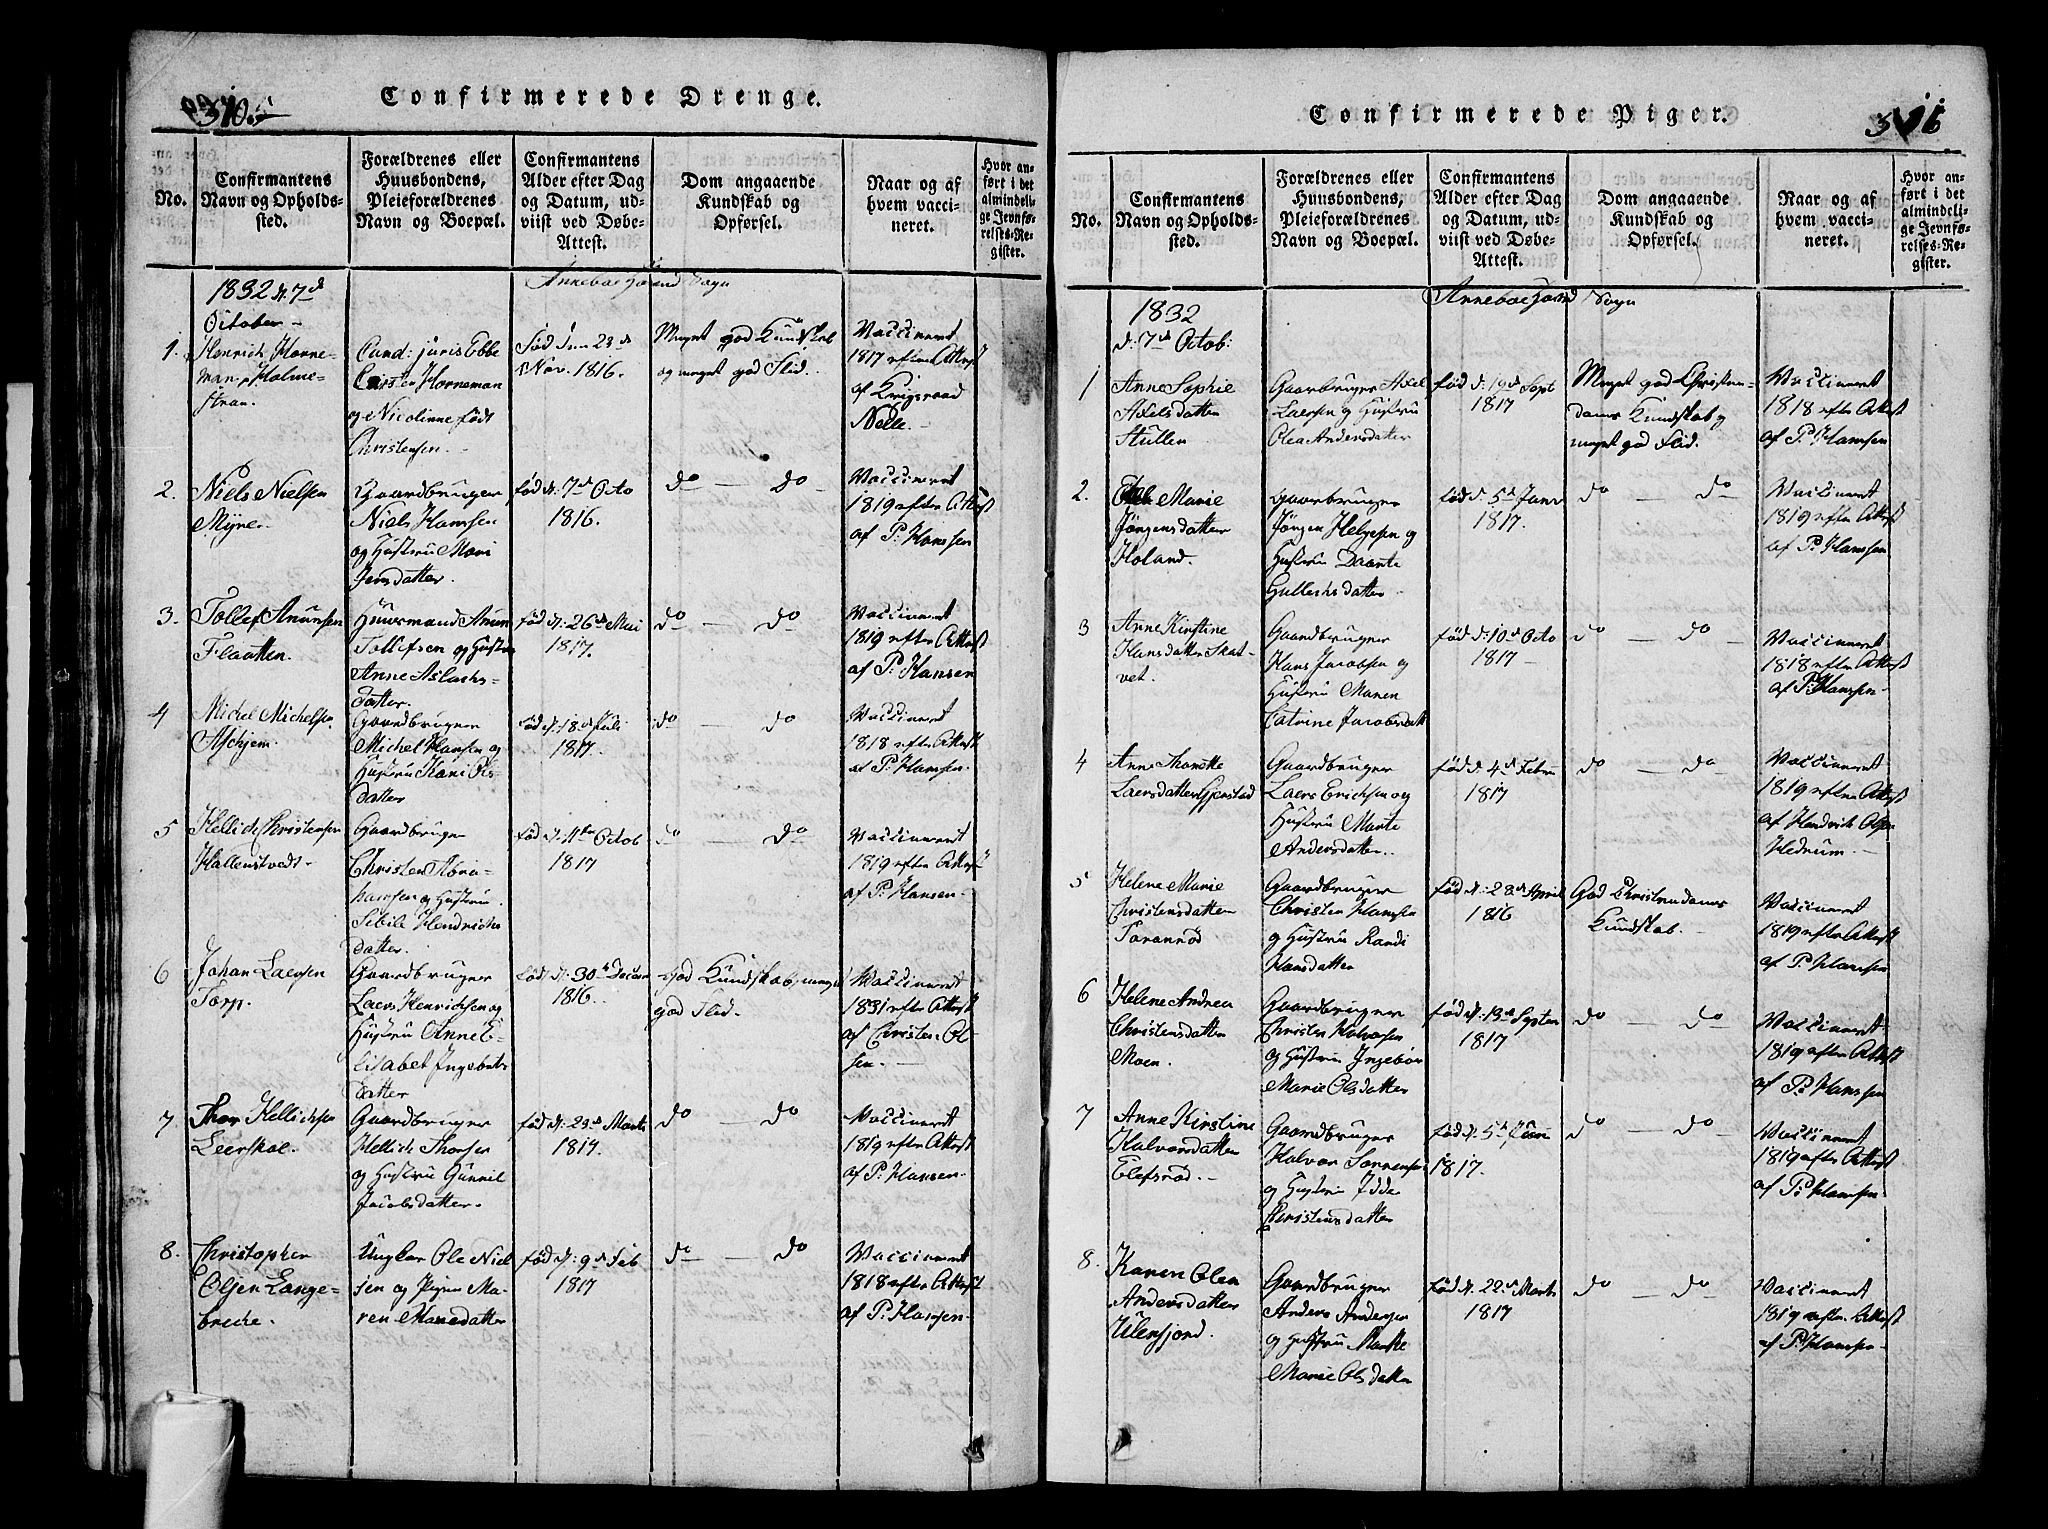 Confirmerede Drenge.
No.
Confirmantens
Navn og Opholds-
sted.
Forældrenes eller
Huusbondens,
Pleieforældrenes
Navn og Boepæl.
Confirmantens
Alder efter Dag
og Datum, ud-
viist ved Døbe-
Attest.
Dom angaaende
Kundskab og
Opførsel.
Naar og af
hvem vacci-
neret.
Hvor an-
ført i det
almindeli-
ge Jevnfø-
relses-Re-
gister.
Sogn
1832 d. 7d
October
1.
Henrich Horne-
man Holme-
stran.
Cand: juris Ebbe
Carsten Horneman
og Nicolinne født
Christensen.
Født den 23d
Nov. 1816.
Meget god Kundskab
og meget god Flid.
Vaccineret
1817 efter Attest
af Krigsraad
2.
Niels Nielsen
Myre.
Gaardbruger
Niels Hansen
og Hustrue Mari
Jensdatter.
født d. 7d Octo
1816.
do — do
Vaccineret
1819 efter Attest
af P. Hansen
3.
Tollef Anunsen
Flaatten.
Huusmand Anun
Tollefsen og Hustru
Anne Aslachs-
datter.
født d. 26d Mai
1817.
do — do
Vaccineret
1819 efter Attest
af P. Hansen
4
Michel Michelsen
Askjem.
Gaardbruger
Michel Hansen og
Hustrue Kari Ols
datter
født d. 18d Juli
1817.
do — do
Vaccineret
1818 efter Attest
af P. Hansen.
5
Kellich Christensen
Hallenstvedt.
Gaardbruger
Christen Abra-
hamsen og Hustrue
Sibile Hendrichs
datter.
født d. 11te Octob
1817
do do
Vaccineret
1819 efter Attest
af P. Hansen.
6
Johan Laersen
Torp.
Gaardbruger
Laers Henrichsen og
Hustrue Anne E-
lisabet Ingebrets
datter
født d. 30d Decem
1816.
God Kundskab, meget
god Flid.
Vaccineret
1831 efter Attest
af Christen Ol-
sen.
7
Thor Kellichsen
Leerskal.
Gaardbruger
Kellich Thorsen
og Hustrue Gunnil
Jacobsdatter.
født d. 23d Marts
1817.
do — do
Vaccineret
1819 efter Attest
af P. Hansen.
8.
Christopher
Olsen Lange-
breche.
Ungkar Ole Niel
sen og Pigen Ma-
ren
født d. 9d Feb
1817
do — do
Vaccineret
1818 efter Attest
af P. Hansen.
Confirmerede Piger.
No.
Confirmantens
Navn og Opholds-
sted.
Forældrenes eller
Huusbondens,
Pleieforældrenes
Navn og Boepæl.
Confirmantens
Alder efter Dag
og Datum, ud-
viist ved Døbe-
Attest.
Dom angaaende
Kundskab og
Opførsel.
Naar og af
hvem vacci-
neret.
Hvor an-
ført i det
almindeli-
ge Jevnfø-
relses-Re-
gister.
Sogn
1832
d. 7d Octob:
1
Anne Sophie
Axelsdatter
Stullen
Gaarbruger Axel
Laersen og Hustrue
Olea Andersdatter
født d. 19d Sept
1817
Meget god Christen-
doms Kundskab og
meget god Flid.
Vaccineret
1818 efter Attest
af P. Hansen
2.
Marie
Jörgensdatter
Holand.
Gaarbruger
Jörgen Helgesen og
Hustrue Daarte
Gullechsdatter
født d. 5d Janr
1817.
do — do
Vaccineret
1819 efter Attest
af P. Hansen
3
Anne Kirstine
Hansdatter Skat-
vet.
Gaardbruger
Hans Jacobsen og
Hustrue Maren
Catrine Jacobsdatt
født d. 10d Octo
1817
do — do
Vaccineret
1818 efter Attest
af P. Hansen
4
Anne
Laersdatter Gjerstad
Gaardbruger
Laers Erichsen og
Hustrue Marte
Andersdatter.
født d. 4d Febru
1817
do — do
Vaccineret
1819 efter Attest
af Hendrik Olsen
Hedrum.
5
Helene Marie
Christensdatter
Taranrød
Gaardbruger
Christen Hansen
og Hustrue Randi
Hansdatter
født d. 28d April
1816
God Christendoms
Kundskab.
Vaccineret
1819 efter Attest
af P. Hansen
6
Helene Andrea
Christensdatter
Moen.
Gaardbruger
Christen Halvorsen
og Hustrue Ingebor
Marie Olsdatter
født d. 13d Septem
1817
do — do
Vaccineret
1819 efter Attest
af P. Hansen
7
Anne Kirstine
Halvorsdatter
Elefsrød.
Gaardbruger
Halvor Sörrensen
og Hustrue Idde
Christensdatter
født d. 5d Juni
1817.
do — do
Vaccineret
1819 efter Attest
af P. Hansen
8.
Karen Olea
Andersdatter
Ulensjord.
Gaardbruger
Anders Andersen
og Hustrue Marthe
Marie Olsdatter
født d. 22d Marts
1817
do — do
Vaccineret
1819 efter Attest
af P. Hansen